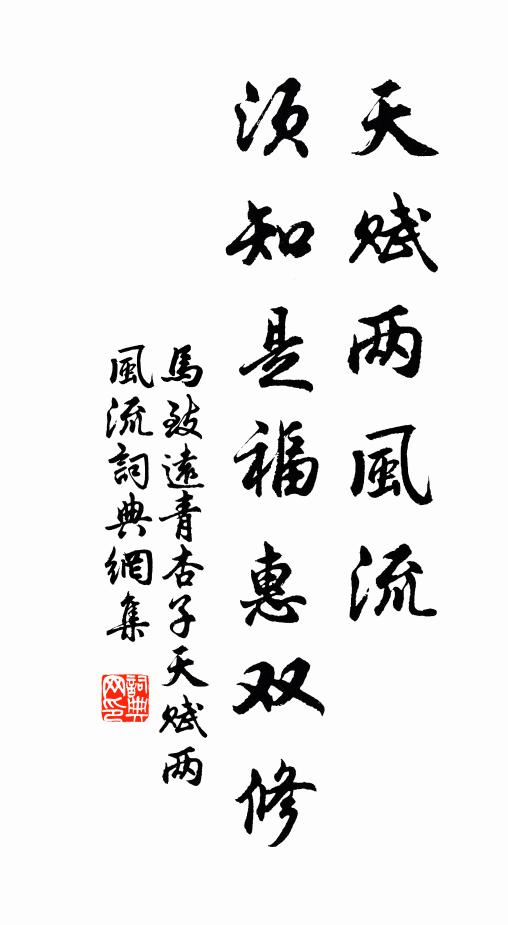 天赋两風流
须知是福惠双修
馬致遠青杏子天赋两
風流詞典網集
詞典
网印